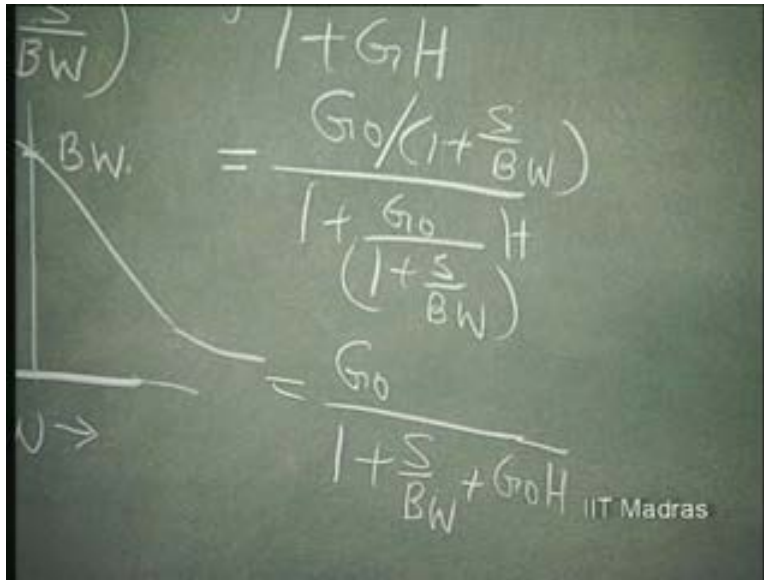 S/BW)
1+GH
BW.
= G0/(1+S/BW)
1+G0/(1+S/BW) H
= G0
1+S/BW+G0H
→
IIT Madras